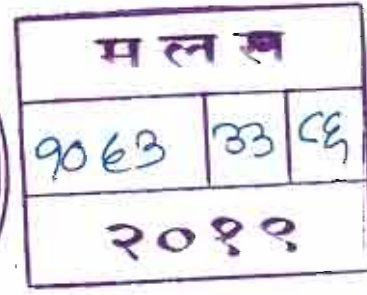 म ल स
१०६३ ३३ ८६
२०१९